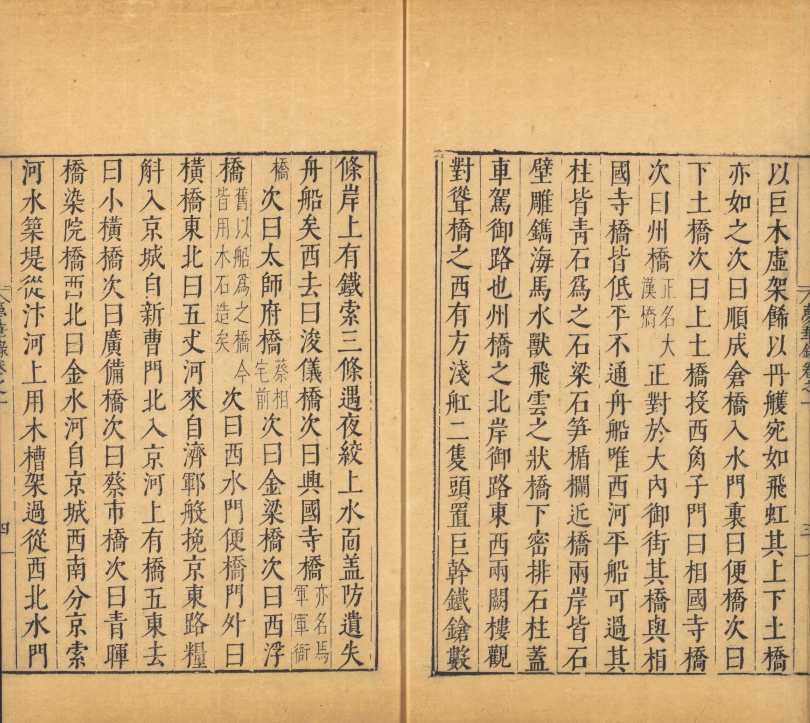 以巨木虛架飾以丹雘宛如飛虹其上下土橋
亦如之次曰順成倉橋入水門裏曰便橋次曰
下土橋次曰上土橋投西角子門曰相國寺橋
次曰州橋正名大漢橋正對於大內御街其橋與相
國寺橋皆低平不通舟船唯西河平船可過其
柱皆青石爲之石梁石笋楯欄近橋兩岸皆石
壁雕鐫海馬水獸飛雲之狀橋下密排石柱蓋
車駕御路也州橋之北岸御路東西兩闕樓觀
對聳橋之西有方淺舡二隻頭置巨幹鐵鎗數
條岸上有鐵索三條遇夜絞上水面蓋防遺失
舟船矣西去曰浚儀橋次曰興國寺橋亦名馬軍衙
橋次曰太師府橋蔡相宅前次曰金梁橋次曰西浮
橋舊以船爲之橋今皆用木石造矣次曰西水門便橋門外曰
橫橋東北曰五丈河來自濟鄆般挽京東路糧
斛入京城自新曹門北入京河上有橋五東去
曰小橫橋次曰廣備橋次曰蔡市橋次曰青暉
橋染院橋西北曰金水河自京城西南分京索
河水築堤從汴河上用木槽架過從西北水門
夢華錄卷之一
四